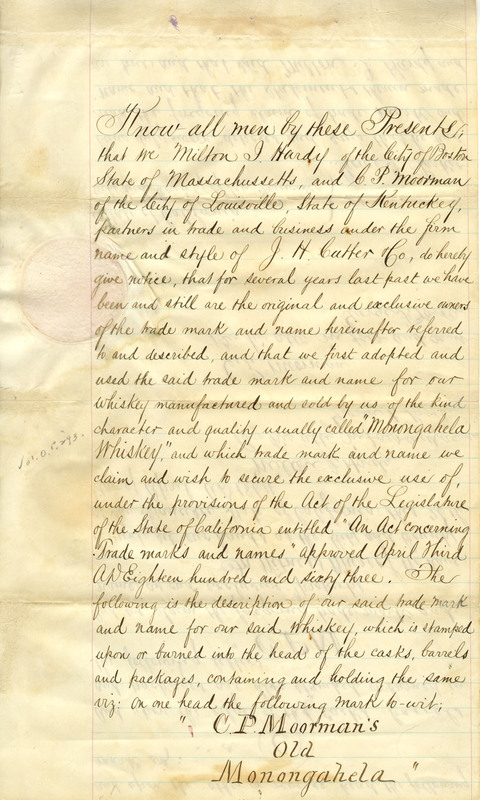 Know all men by these Presents,
that we Milton J Hardy of the City of Boston
State of Massachussetts, and C. P. Moorman
of the City of Louisville, State of Kentuckey,
partners in trade and business under the firm
name and style of J. H. Cutter Co, do hereby
give notice, that for several years last past we have
been and still are the original and exclusive owners
of the trade mark and name hereinafter referred
to and described, and that we first adopted and
used the said trade mark and name for our
Whiskey manufactured and sold by us of the kind
character and quality usually called "Monongahela
Whiskey," and which trade mark and name we
claim and wish to secure the exclusive use of,
under the provisions of the Act of the Legislature
of the State of California entitled "An Act concerning
Trade marks and names" approved April Third
AD Eighteen hundred and sixty three. The
following is the description of our said trade mark
and name for our said Whiskey, which is stamped
upon or burned into the head of the casks, barrels
and packages, containing and holding the same
viz: on one head the following mark to-wit;
" C. P. Moorman's
Old
Monongahela "